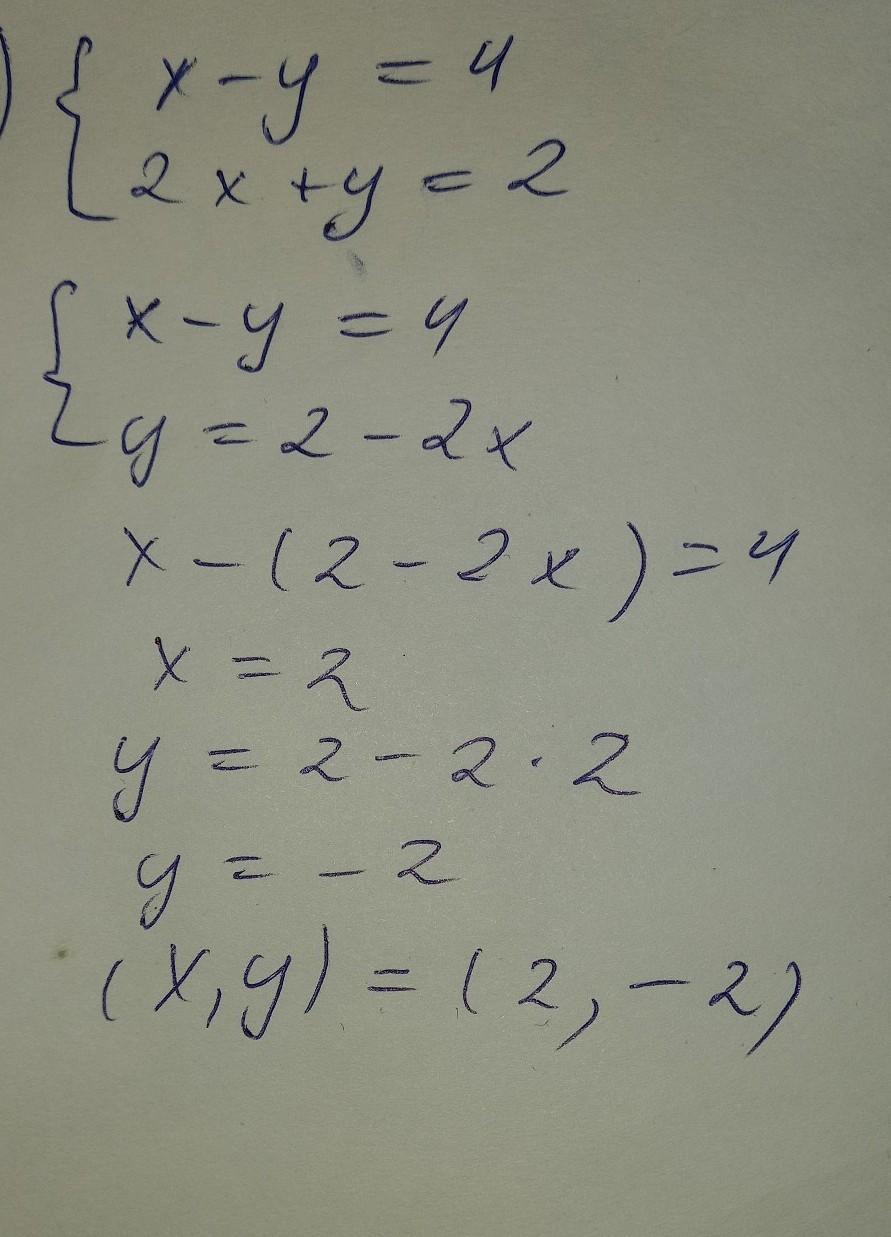 ) { x - y = 4
2x + y = 2
{ x - y = 4
y = 2 - 2x
x - (2 - 2x) = 4
x = 2
y = 2 - 2 · 2
y = - 2
(x, y) = (2, - 2)